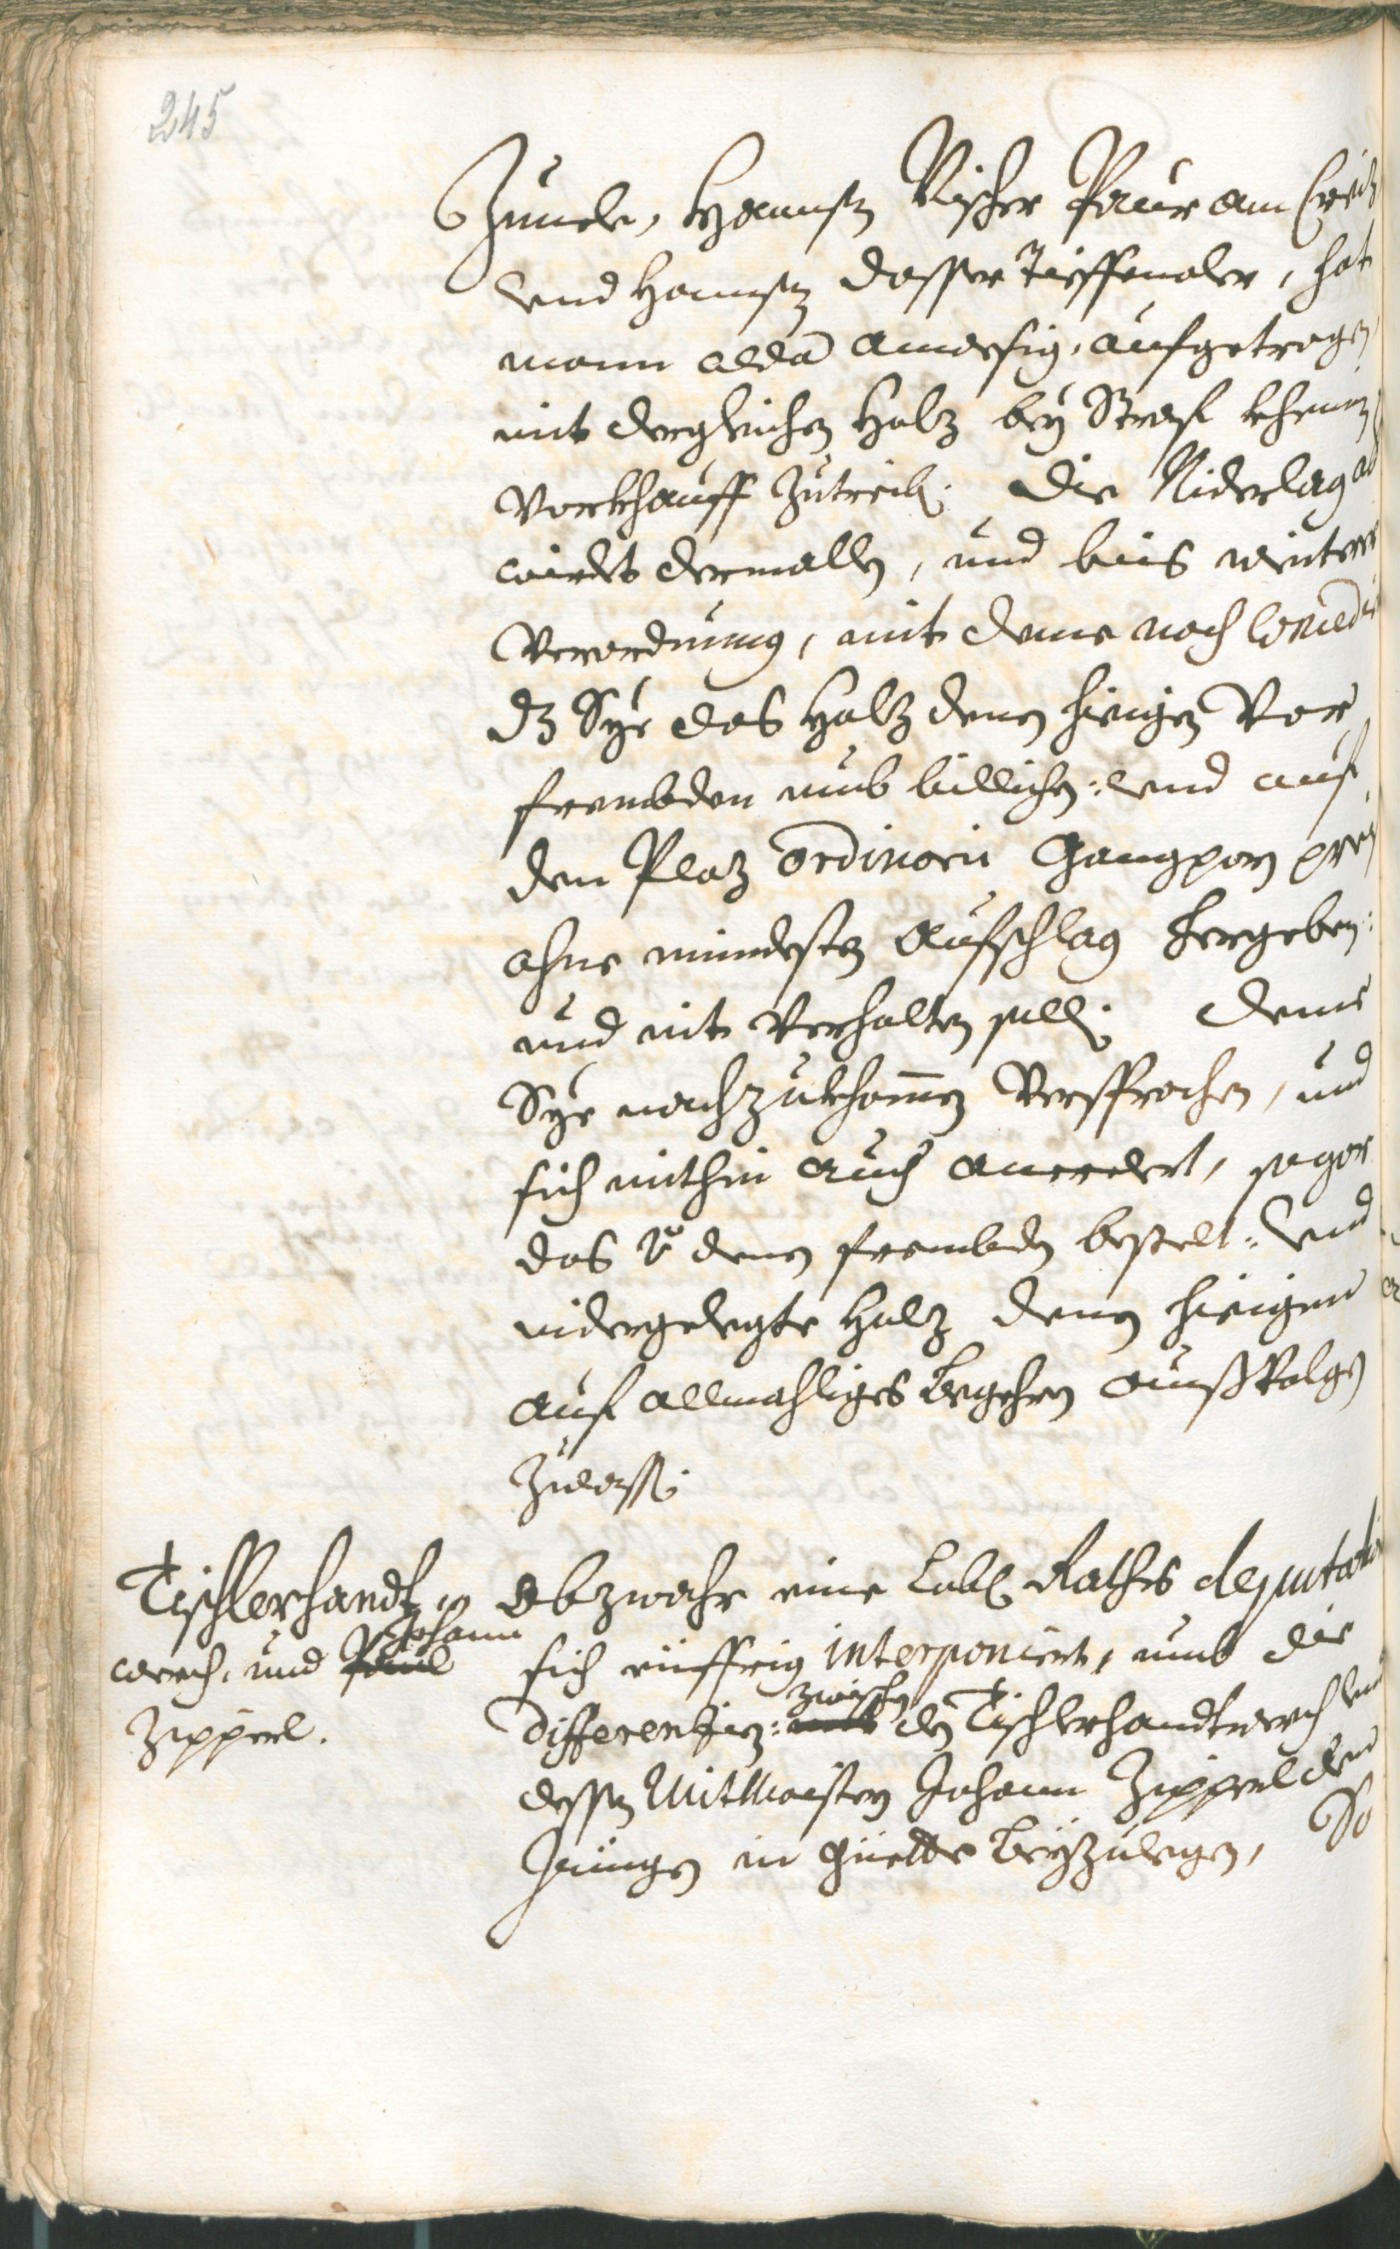 245
Hannsen Vischer Paur am
und Hannsen dasser Tieffenaler, hat
mann alda anwesig, aufgetragen
mit dergleichen Holz bey Straf kheinen
Vorkhauff zutreib. Die Niderlag
wirdet dermallen, und biis weiterer
Verordnung, mit deme noch
dz Sye das Holz denen hieigen Vor
frembden umb billichen: und auf
den Plaz ordinari Gangparen
ohne mindesten Aufschlag hergeben:
und nit Verhalten soll. Deme
Sye nachzukhommen Versprochen, und
sich mithin auch anerclert, sogar
das v denen frembden bestelt: und
nidergelegte Holz denen hieigen
auf allmahliges Begehren aussvolgen
zulassen.
Tischlerhandt
werch, und Johann
Zipperl.
Obzwahr eine Lobl Raths deputation
sich eüffrig interponiert, umb die
Differenzien: zwischen den Tischlerhandtwerch und
dessen Mitmaistern Johann Zipperl den
Jüngern in Güette beyzulegen, So